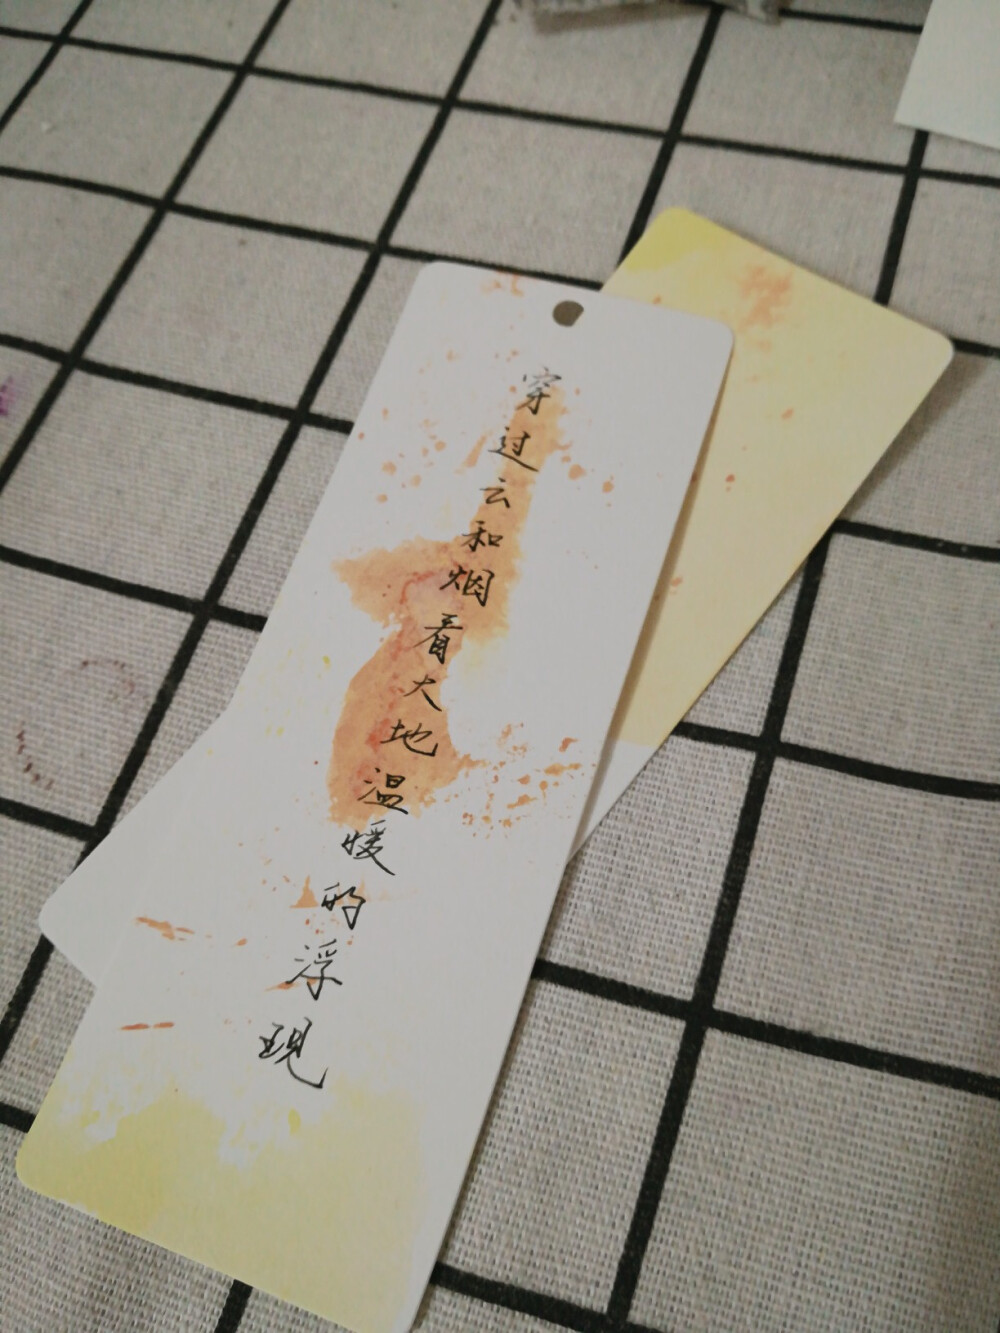 穿过云和烟看大地温暖的浮现